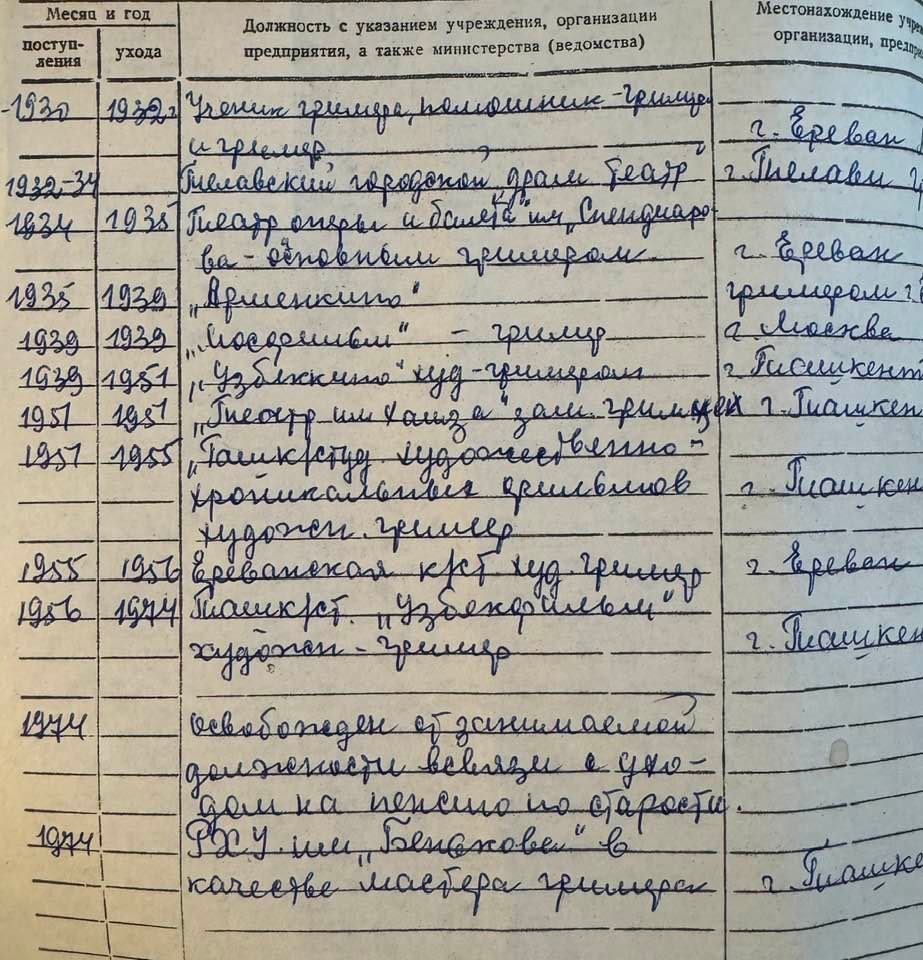 Месяц и год
поступ-
ления
ухода
Должность с указанием учреждения, организации
предприятия, а также министерства (ведомства)
Местонахождение
организации,
1930 1932г Ученик гримера, помошник-гримера
и гример г. Ереван
1932-34 Телавский городской драм театр г. Телави
1934 1935 Театр оперы и балета им „Спендиаро-
ва - основным гримером. г. Ереван
1935 1939 „Арменкино" гримером г.
1939 1939 „Мосфильм" - гример г Москва
1939 1951 „Узбеккино" худ-гримером г Ташкент
1951 1951 „Театр им Хамза" зам. г. Ташкен
1951 1955 „Ташк/студ. художественно-
хроникальных фильмов г. Ташкен
художн. гример
1955 1956 Ереванская к/ст худ. гример г. Ереван
1956 1974 Ташк/ст. „Узбекфильм"
художн - гример г. Ташкен
1974 освобожден от занимаемой
должности всвязи с ухо-
дом на пенсию по старости.
1974 РХУ. им „Бенькова" в
качестве мастера гримера г. Ташке